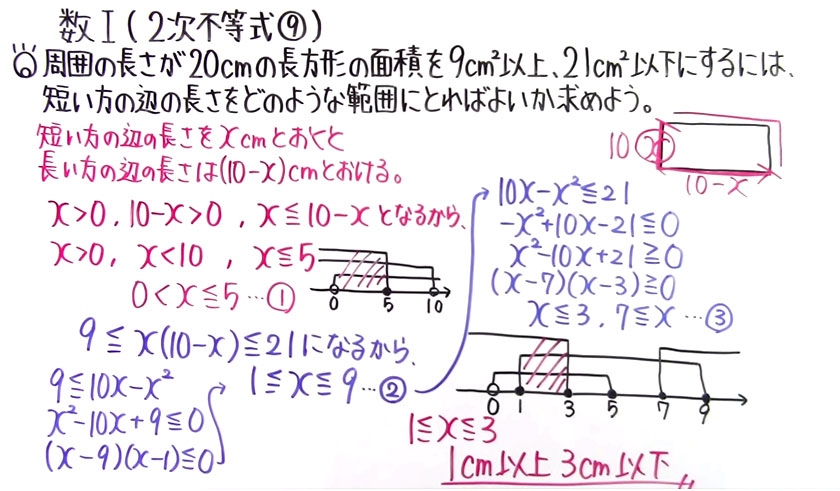 数Ⅰ(2次不等式⑨)
周囲の長さが20cmの長方形の面積を9cm²以上、21cm²以下にするには、
短い方の辺の長さをどのような範囲にとればよいか求めよう。
短い方の辺の長さをxcmとおくと
長い方の辺の長さは(10-x)cmとおける。
10 x
10-x
x>0, 10-x>0, x≦10-xとなるから、
x>0, x<10, x≦5
0<x≦5…①
0 5 10
9≦x(10-x)≦21になるから、
9≦10x-x²
x²-10x+9≦0
(x-9)(x-1)≦0
1≦x≦9…②
10x-x²≦21
-x²+10x-21≦0
x²-10x+21≧0
(x-7)(x-3)≧0
x≦3, 7≦x…③
0 1 3 5 7 9
1≦x≦3
1cm以上3cm以下